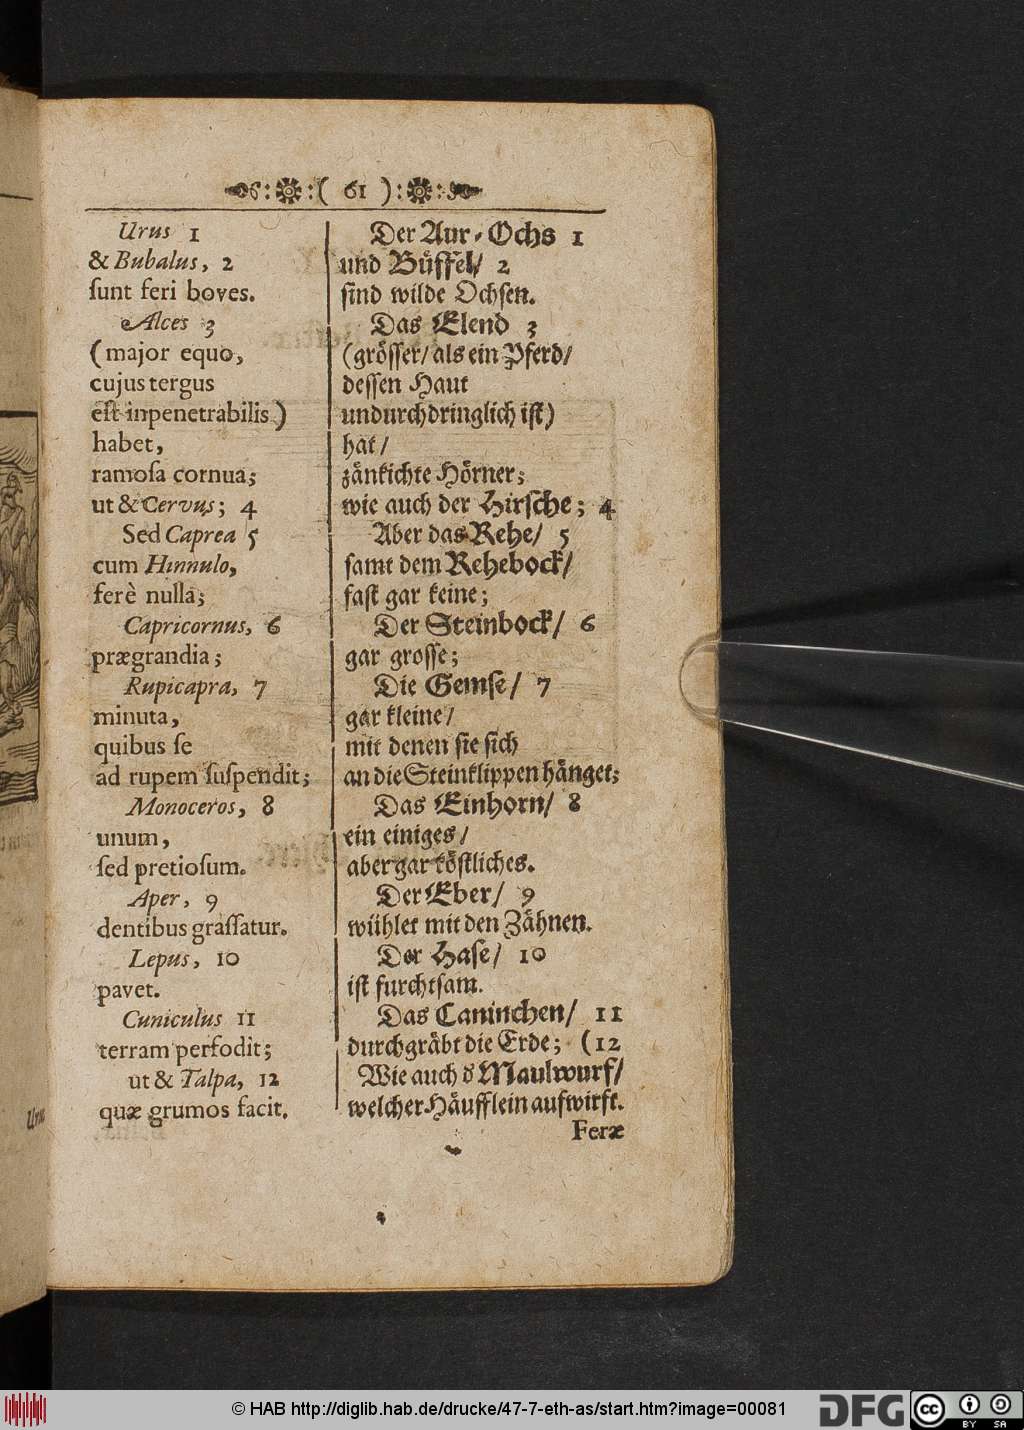 ( 61 )
Urus 1
& Bubalus, 2
ſunt feri boves.
Alces 3
(major equo,
cujus tergus
eſt inpenetrabilis)
habet,
ramoſa cornua;
ut & Cervus; 4
Sed Caprea 5
cum Hinnulo,
ferè nulla;
Capricornus, 6
prægrandia;
Rupicapra, 7
minuta,
quibus ſe
ad rupem ſuſpendit;
Monoceros, 8
unum,
ſed pretioſum.
Aper, 9
dentibus graſſatur.
Lepus, 10
pavet.
Cuniculus 11
terram perfodit;
ut & Talpa, 12
quæ grumos facit.
Der Aur-Ochs 1
und Büffel/ 2
ſind wilde Ochſen.
Das Elend 3
(gröſſer/ als ein Pferd/
deſſen Haut
undurchdringlich iſt)
hat/
zänkichte Hörner;
wie auch der Hirſche; 4
Aber das Rehe/ 5
ſamt dem Rehebock/
faſt gar keine;
Der Steinbock/ 6
gar groſſe;
Die Gemſe/ 7
gar kleine/
mit denen ſie ſich
an die Steinklippen hänget;
Das Einhorn/ 8
ein einiges/
aber gar köſtliches.
Der Eber/ 9
wühlet mit den Zähnen.
Der Haſe/ 10
iſt furchtſam.
Das Caninchen/ 11
durchgräbt die Erde; (12
Wie auch d' Maulwurf/
welcher Häufflein aufwirft.
Feræ
Urus
© HAB http://diglib.hab.de/drucke/47-7-eth-as/start.htm?image=00081
DFG
cc BY SA